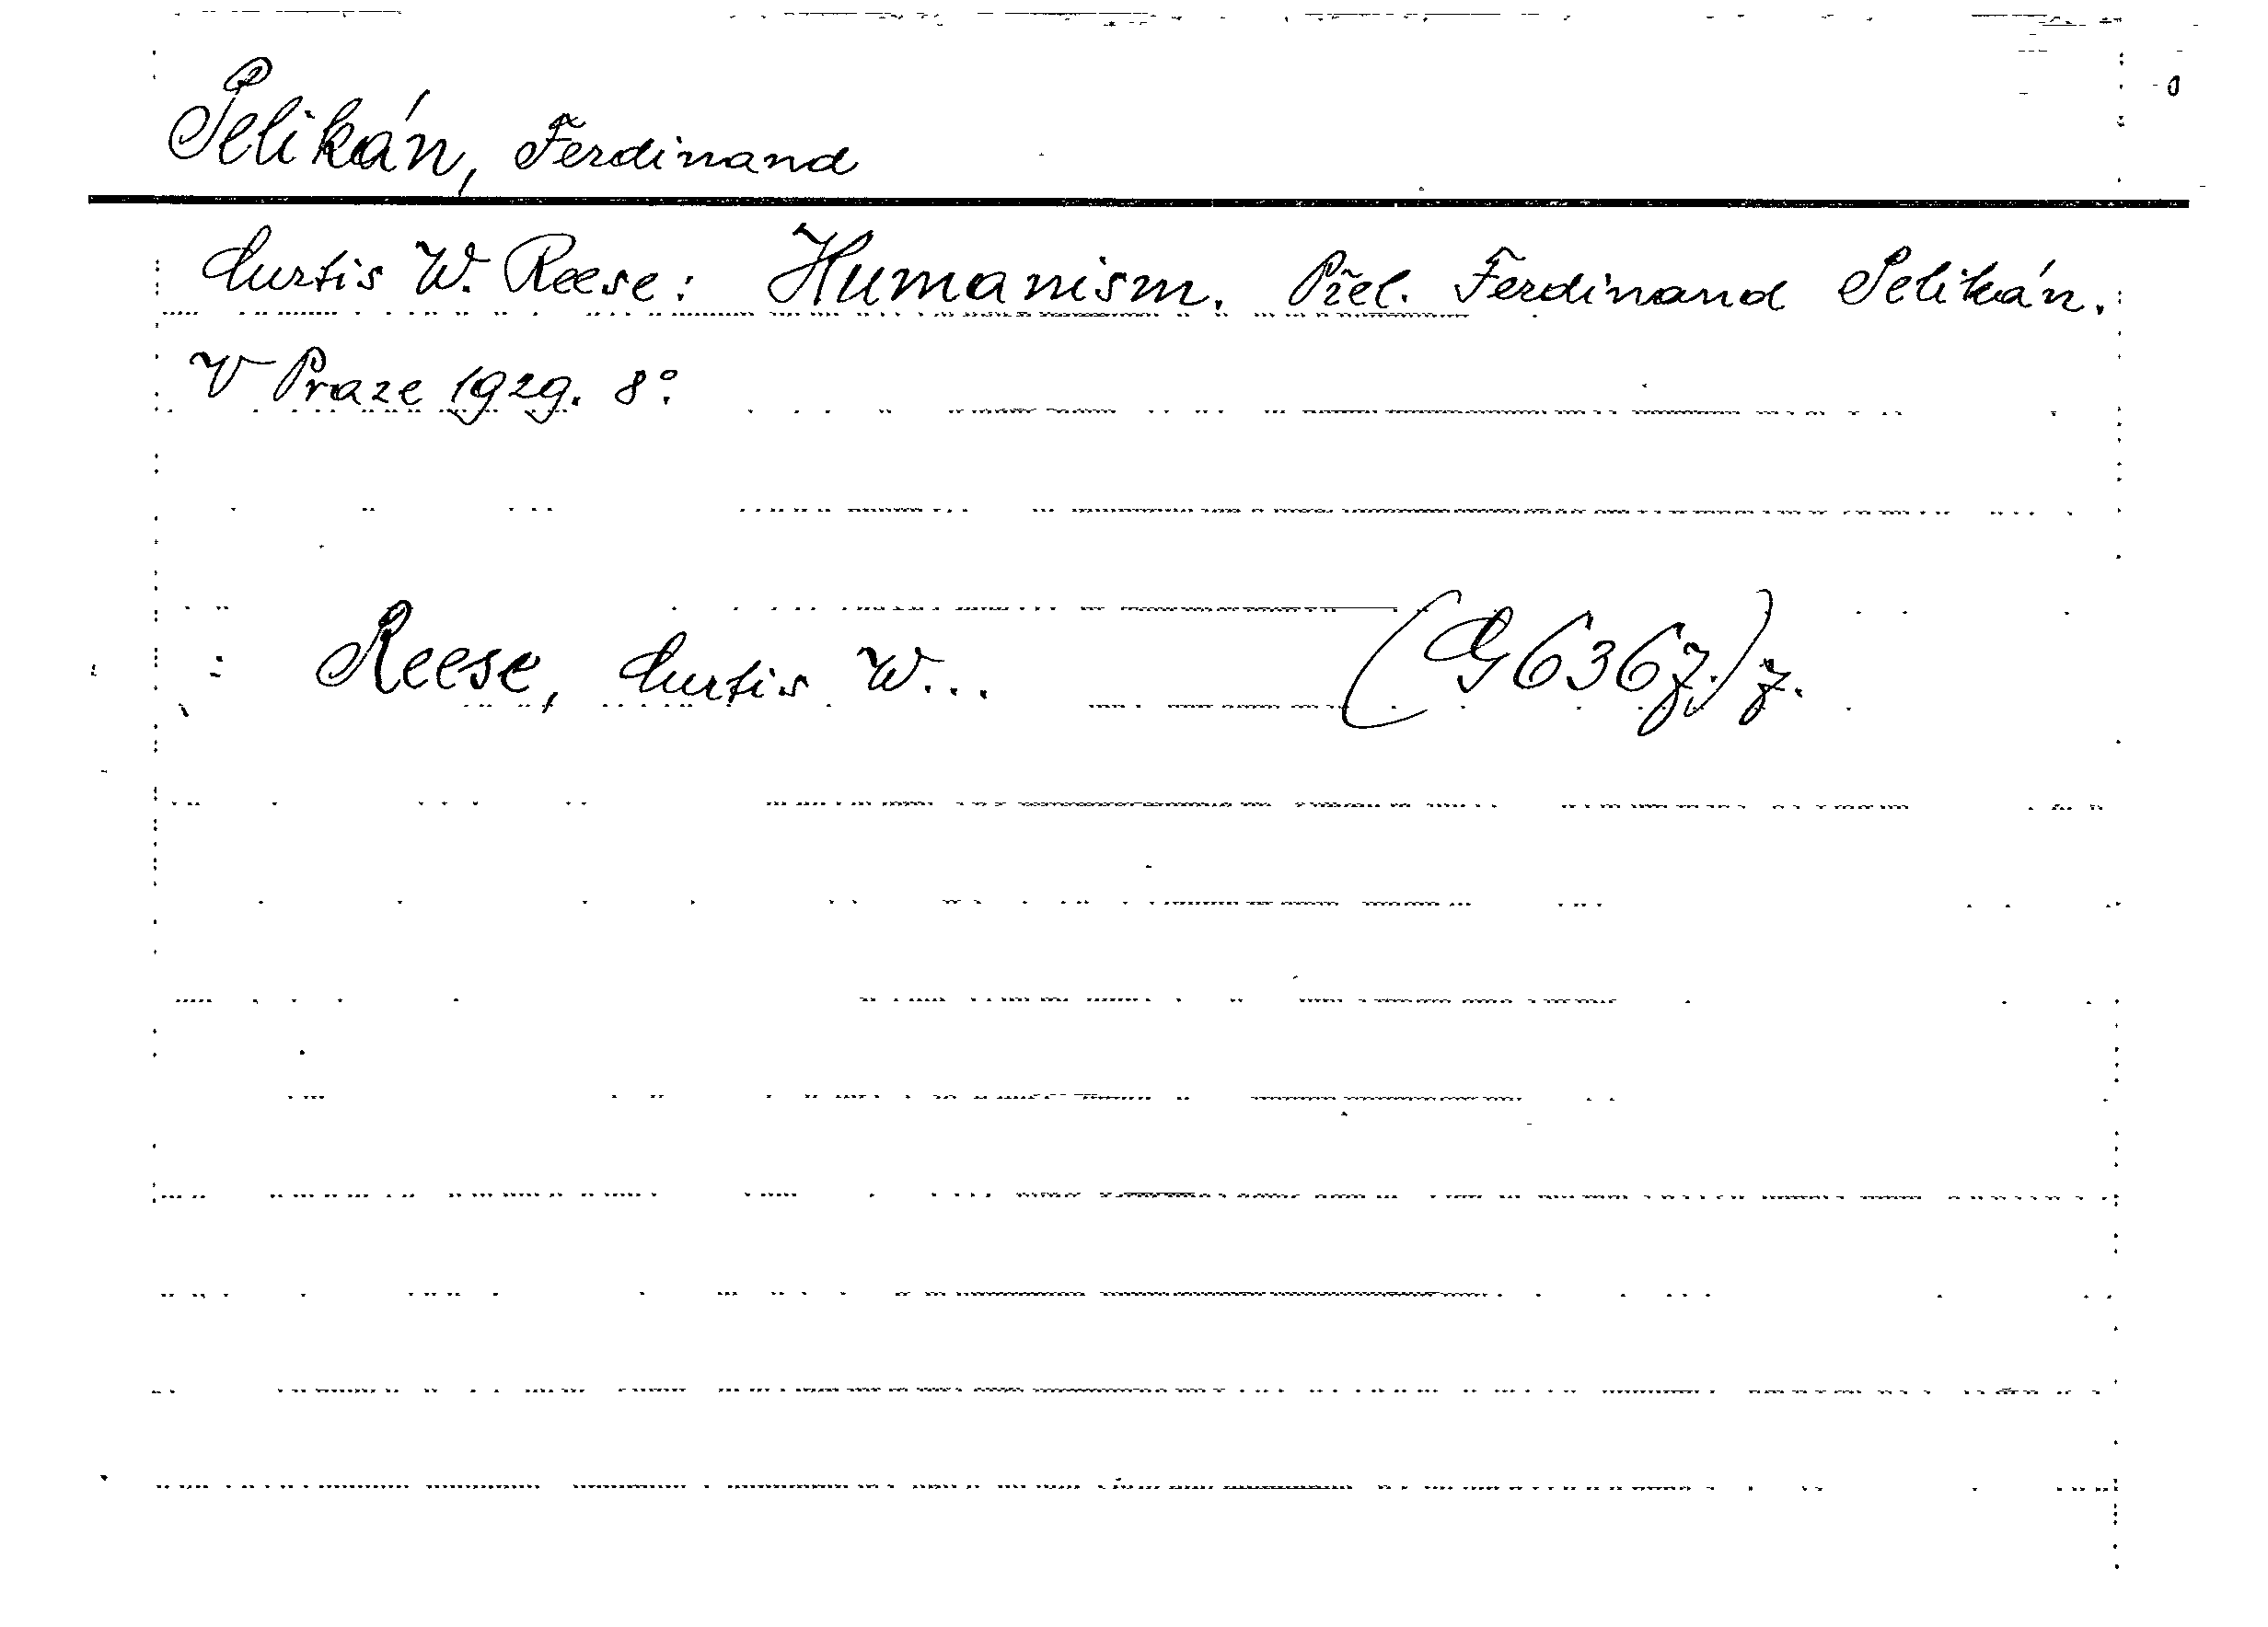 Pelikán, Ferdinand
Curtis W. Reese: Humanism. Přel. Ferdinand Pelikán.
V Praze 1929. 8°.
Reese, Curtis W... (G 636 7.) 7.